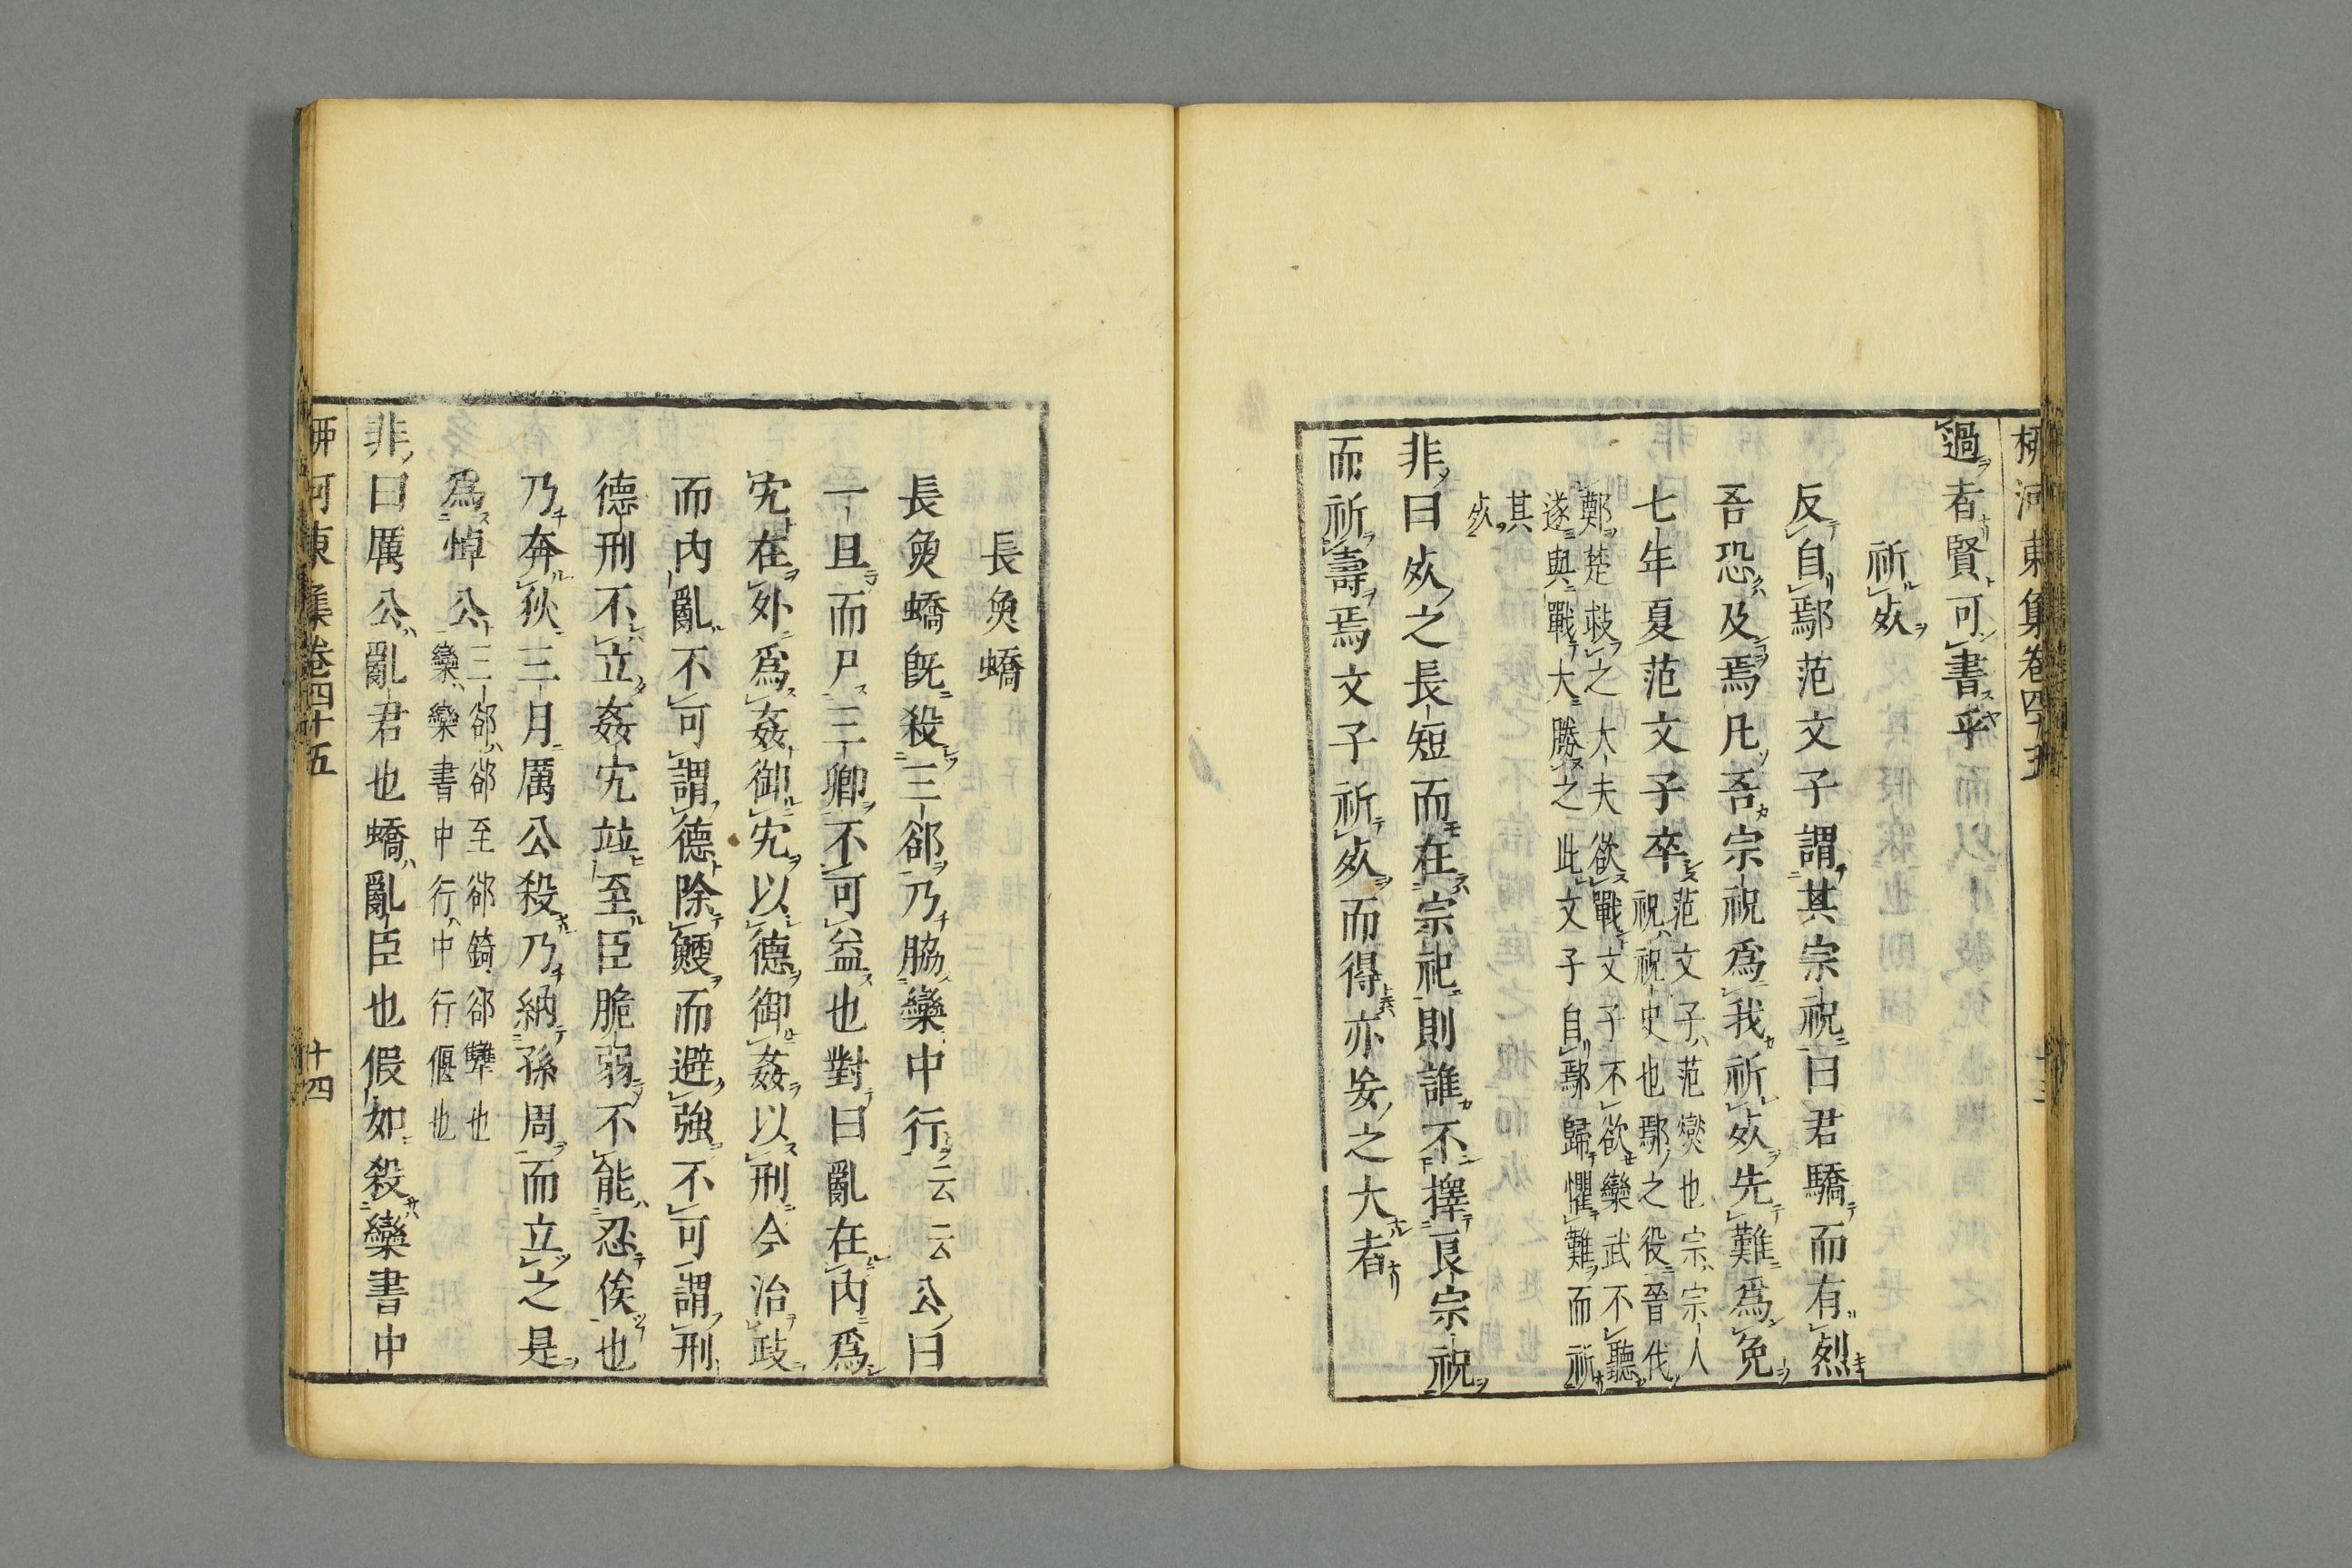 柳河東集卷四十五
過者賢可書乎
祈死
反自鄢范文子謂其宗祝曰君驕而有烈
吾恐及焉凡吾宗祝爲我祈死先難爲免
七年夏范文子卒
范文子范燮也宗宗人
祝祝史也鄢之役晉伐
鄭楚救之大夫欲戰文子不欲欒武不聽
遂與戰大勝之此文子自鄢歸懼難而祈
其
死
非曰死之長短而在宗祀則誰不擇良宗祝
而祈壽焉文子祈死而得亦妄之大者
長魚蟜
長魚蟜旣殺三郤乃脇欒中行云云公曰
一旦而尸三卿不可益也對曰亂在內爲
宄在外爲姦御宄以德御姦以刑今治政
而內亂不可謂德除鯁而避強不可謂刑
德刑不立姦宄竝至臣脆弱不能忍俟也
乃奔狄三月厲公殺乃納孫周而立之是
爲悼公
三郤郤至郤錡郤犨也
欒欒書中行中行偃也
非曰厲公亂君也蟜亂臣也假如殺欒書中
柳河東集卷四十五 十四